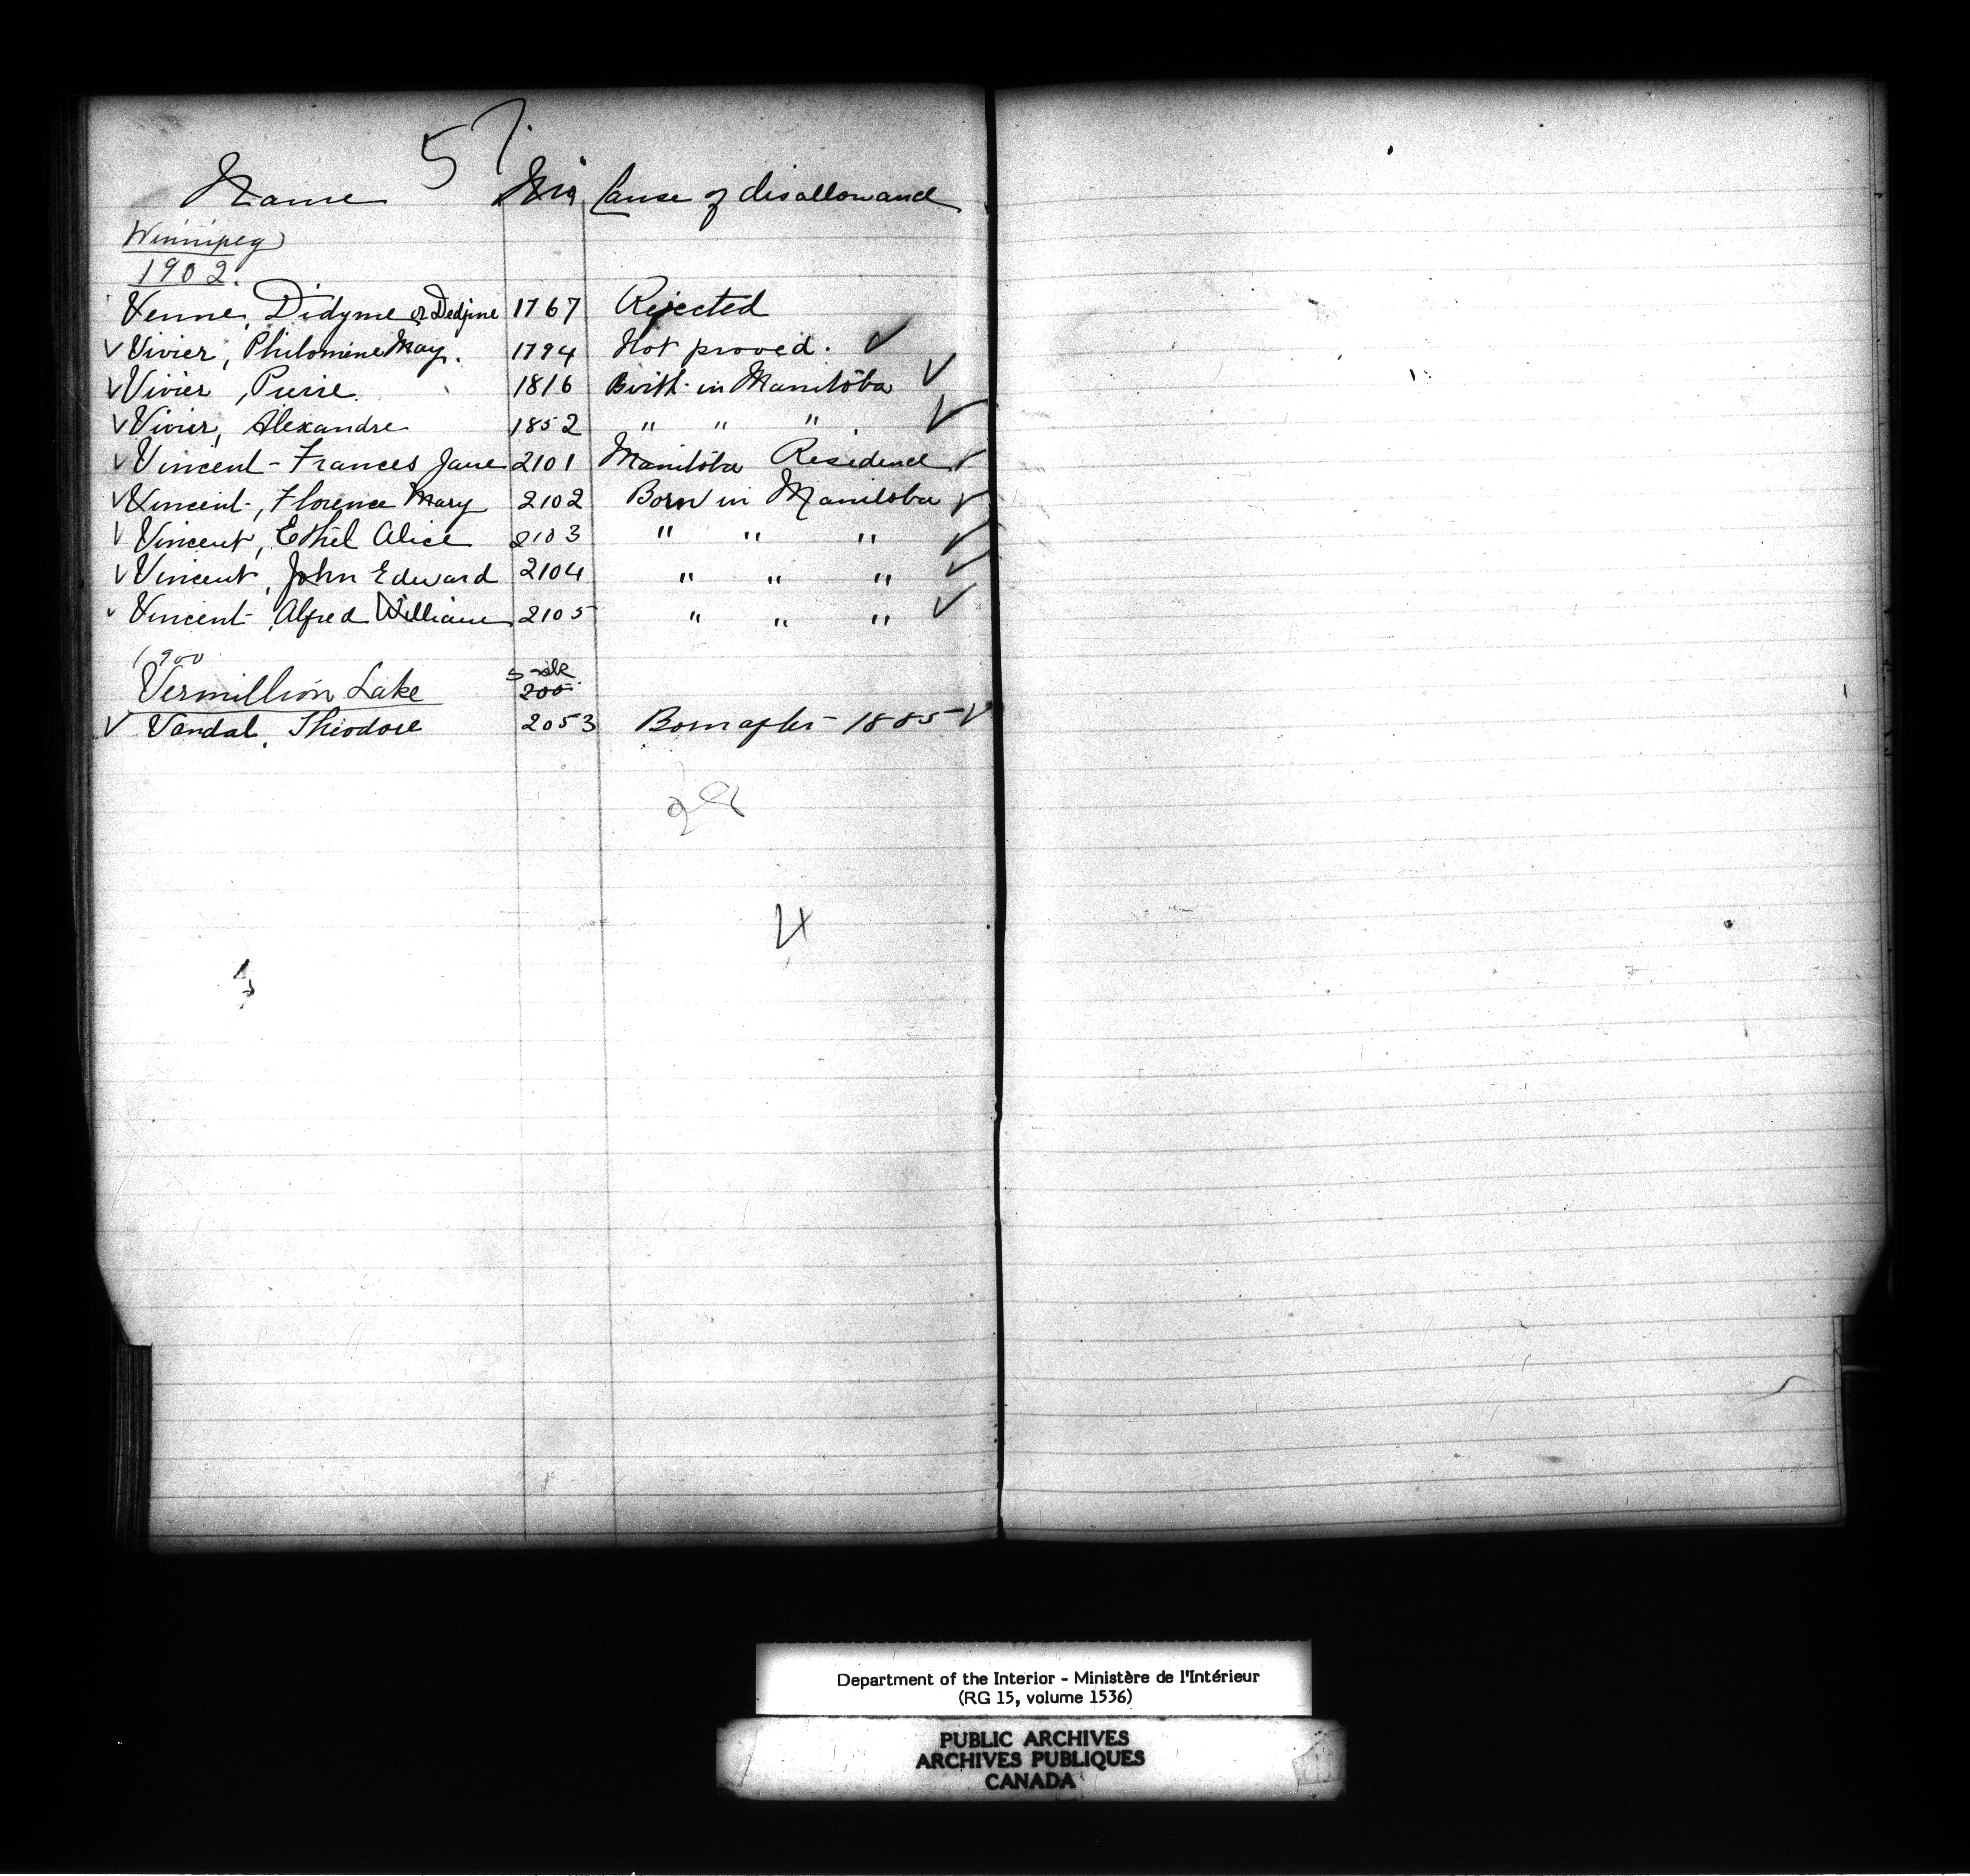 57
Name No Cause of disallowance
Winnipeg
1902.
Venne, Didyme or Dedjine 1767 Rejected
✓ Vivier, Philomine May. 1794 Not proved. ✓
✓ Vivier, Pierre 1816 Birth in Manitoba ✓
✓ Vivier, Alexandre 1852 " " " ✓
✓ Vincent - Frances Jane 2101 Manitoba Residence ✓
✓ Vincent, Florence Mary 2102 Born in Manitoba ✓
✓ Vincent, Ethel Alice 2103 " " " ✓
✓ Vincent, John Edward 2104 " " " ✓
✓ Vincent Alfred William 2105 " " " ✓
1900
Vermillion Lake
✓ Vandal, Theodore 2053 Born after 1885 ✓
Department of the Interior - Ministère de l'Intérieur
(RG 15, volume 1536)
PUBLIC ARCHIVES
ARCHIVES PUBLIQUES
CANADA